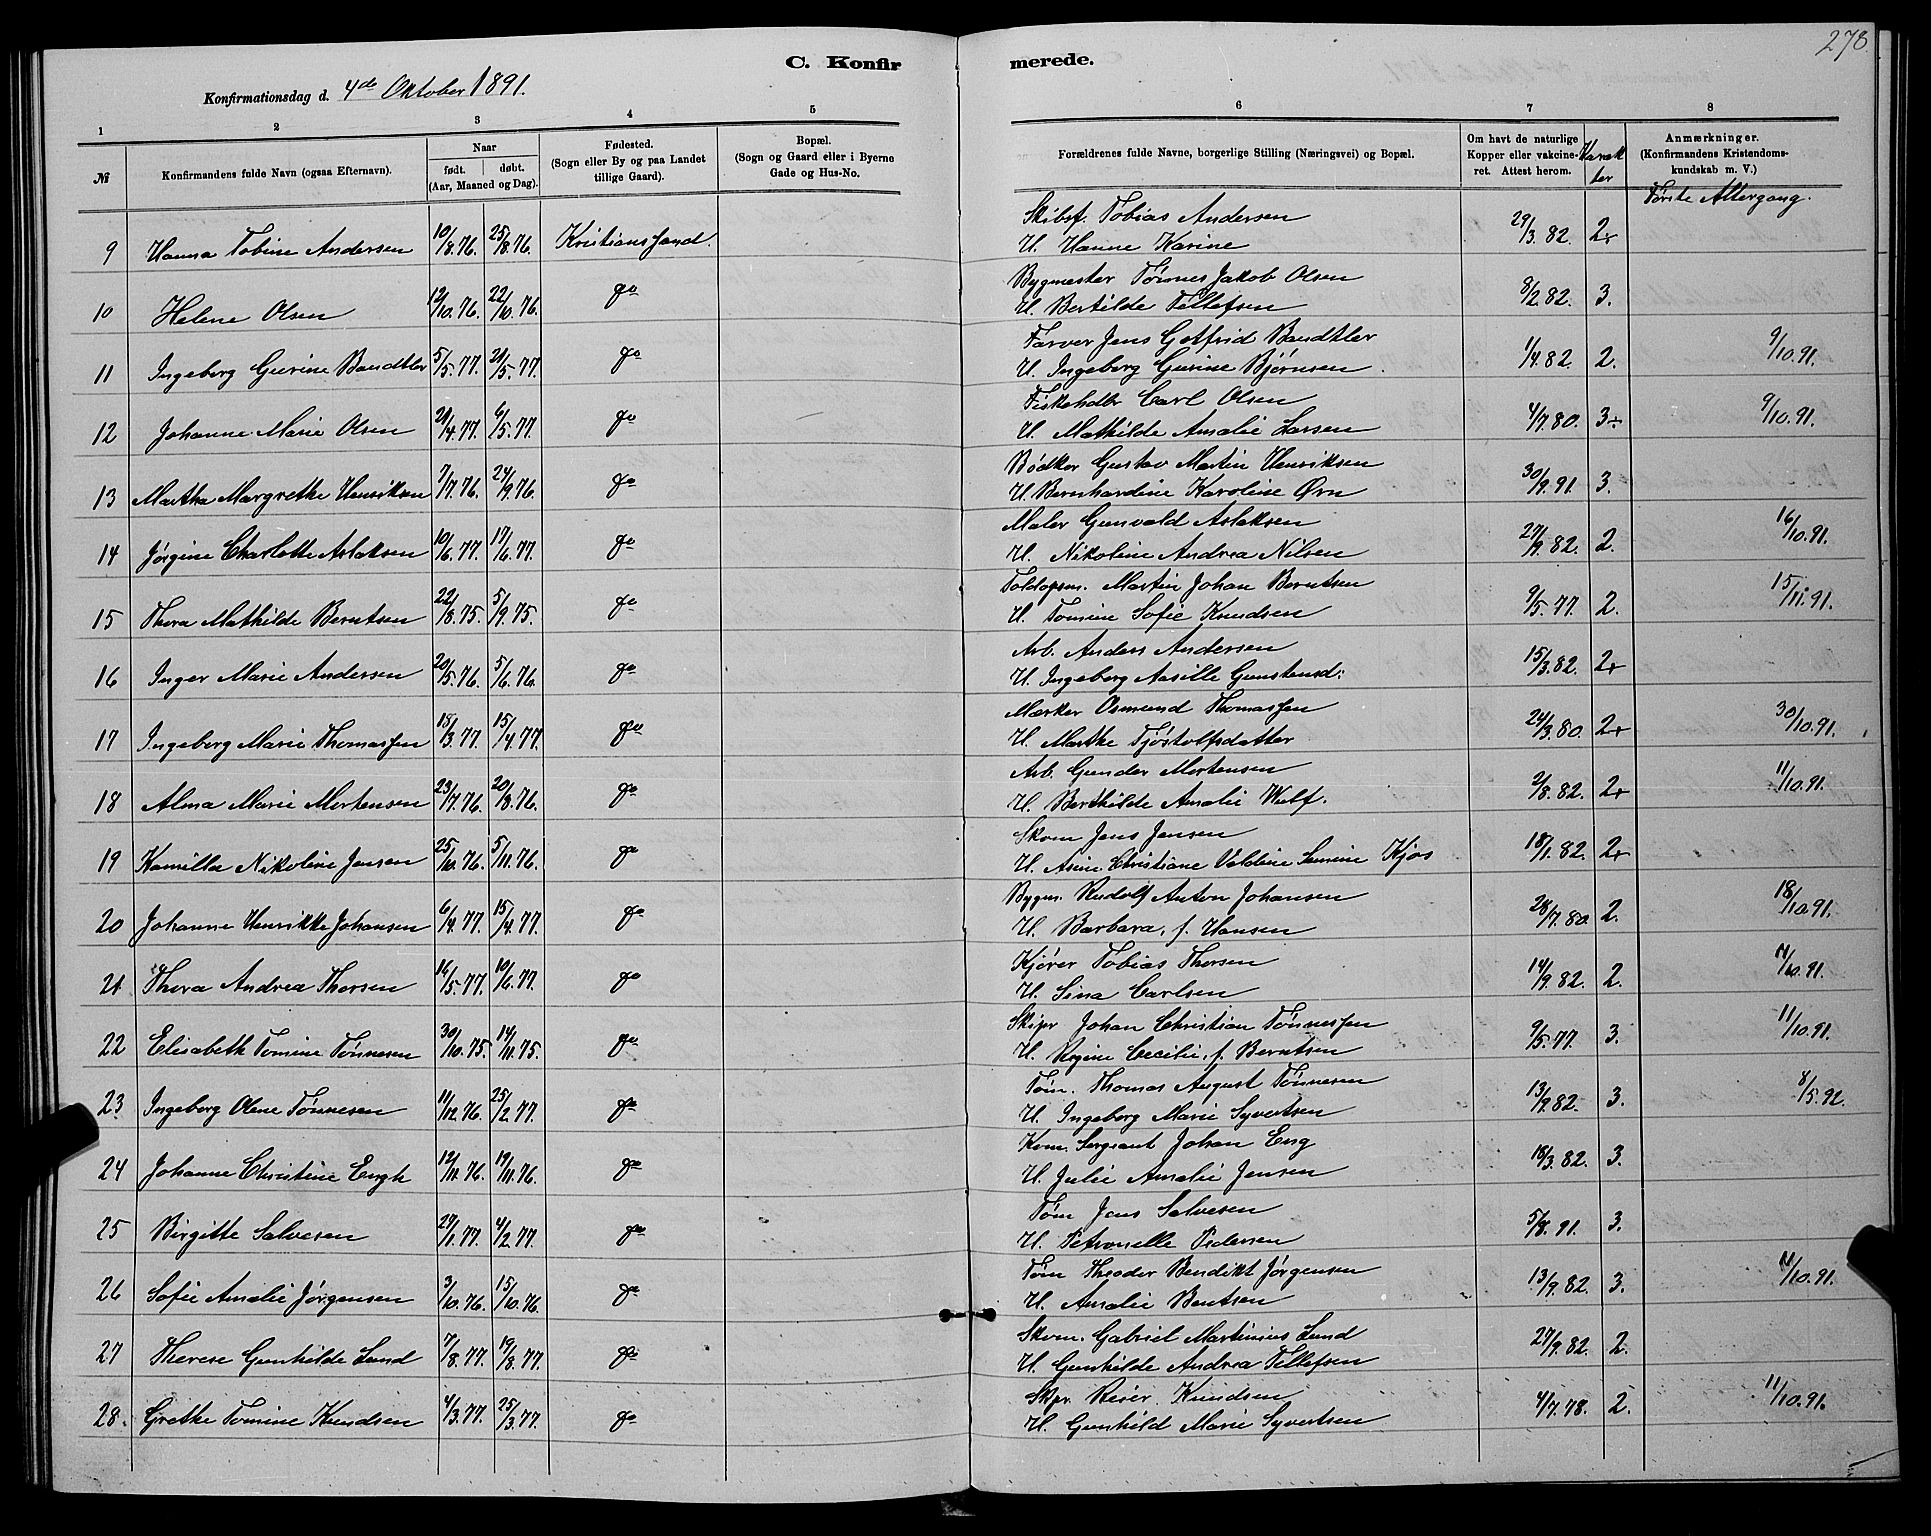 278
C. Konfirmerede.
Konfirmationsdag d. 4de Oktober 1891.
1 2 3 4 5 6 7 8
№
Konfirmandens fulde Navn (ogsaa Efternavn).
Naar
født. døbt.
(Aar, Maaned og Dag).
Fødested.
(Sogn eller By og paa Landet
tillige Gaard).
Bopæl.
(Sogn og Gaard eller i Byerne
Gade og Hus-No.
Forældrenes fulde Navne, borgerlige Stilling (Næringsvei) og Bopæl.
Om havt de naturlige
Kopper eller vakcine-
ret. Attest herom.
Karak
ter
Anmærkninger.
(Konfirmandens Kristendoms-
kundskab m. V.)
Første Altergang.
9 Hanna Tobine Andersen 10/8.76. 25/8.76. Kristianssand. Skibsf. Tobias Andersen
H. Hanne Karine 29/3.82. 2÷
10 Helene Olsen 12/10.76. 22/10.76. do Bygmester Tönnes Jakob Olsen
H. Bertilde Tellefsen 8/2.82. 3.
11 Ingeborg Gurine Bandtler 5/5.77. 21/5.77. do Farver Jens Gotfrid Bandtler
H. Ingeborg Gurine Björnsen. 1/4.82. 2. 9/10.91.
12 Johanne Marie Olsen 21/4.77. 6/5.77. do Fiskehdlr Carl Olsen
H. Mathilde Amalie Larsen 4/7.80. 3÷ 9/10.91.
13 Martha Margrethe Henriksen 7/7.76. 24/9.76. do Bödker Gustav Martin Henriksen
H. Bernhardine Karoline Örn 30/9.91. 3.
14 Jørgine Charlotte Aslaksen 10/6.77. 17/6.77. do Maler Gunvald Aslaksen
H. Nikoline Andrea Nilsen 27/9.82. 2. 16/10.91.
15 Thora Mathilde Berntsen 22/8.75. 5/9.75. do Toldopsm. Martin Johan Berntsen
H. Tomine Sofie Knudsen 9/5.77. 2. 15/11.91.
16 Inger Marie Andersen 20/5.76. 5/6.76. do Arb. Anders Andersen
H. Ingeborg Aasille Gunstensd: 15/3.82. 2+
17 Ingeborg Marie Thomassen 18/3.77. 15/4.77. do Mærker Osmund Thomassen
H. Marthe Tjöstolfsdatter 24/3.80. 2+ 30/10.91.
18 Alma Marie Mortensen 23/7.76. 20/8.76. do Arb. Gunder Mortensen
H. Berthilde Amalie Wulf. 2/8.82. 2+ 11/10.91.
19 Kamilla Nikoline Jensen 25/10.76. 5/11.76. do Skom Jens Jensen
H. Asine Christiane Valdine Kjos 18/1.82. 2+
20 Johanne Henrikke Johansen 6/4.77. 15/4.77. do Bygm. Rudolf Anton Johansen
H. Barbara, f. Hansen 28/7.80. 2. 18/10.91.
21 Thora Andrea Thorsen 16/5.77. 10/6.77. do Kjörer Tobias Thorsen
H. Sina Carlsen 14/9.82. 2. 11/10.91.
22 Elisabeth Tomine Tønnesen 30/10.75. 14/11.75. do Skipr Johan Christian Tönnessen
H. Regine Cecilie, f. Berntsen 9/5.77. 3. 11/10.91.
23 Ingeborg Olene Tönnesen 11/12.76. 25/2.77. do Töm. Thomas August Tönnesen
H. Ingeborg Marie Syvertsen 13/9.82. 3. 8/5.92.
24 Johanne Christine Engh 12/11.76. 19/11.76. do Kom. Sergeant Johan Eng
H. Julie Amalie Jensen 18/3.82. 3.
25 Birgitte Salvesen 29/1.77. 4/2.77. do Töm Jens Salvesen
H. Petronelle Pedersen 5/8.91. 3.
26 Sofie Amalie Jörgensen 3/10.76. 15/10.76. do Töm Theodor Bendikt Jörgensen
H. Amalie Bentsen 13/9.82. 3. 11/10.91.
27 Therese Gunhilde Lund 7/8.77. 19/8.77. do Skom. Gabriel Martinius Lund
H. Gunhilde Andrea Tellefsen 27/9.82. 2.
28. Grethe Tomine Knudsen 4/3.77. 25/3.77. do Skpr. Reier Knudsen
H. Gunhild Marie Syvertsen 4/7.78. 2. 11/10.91.